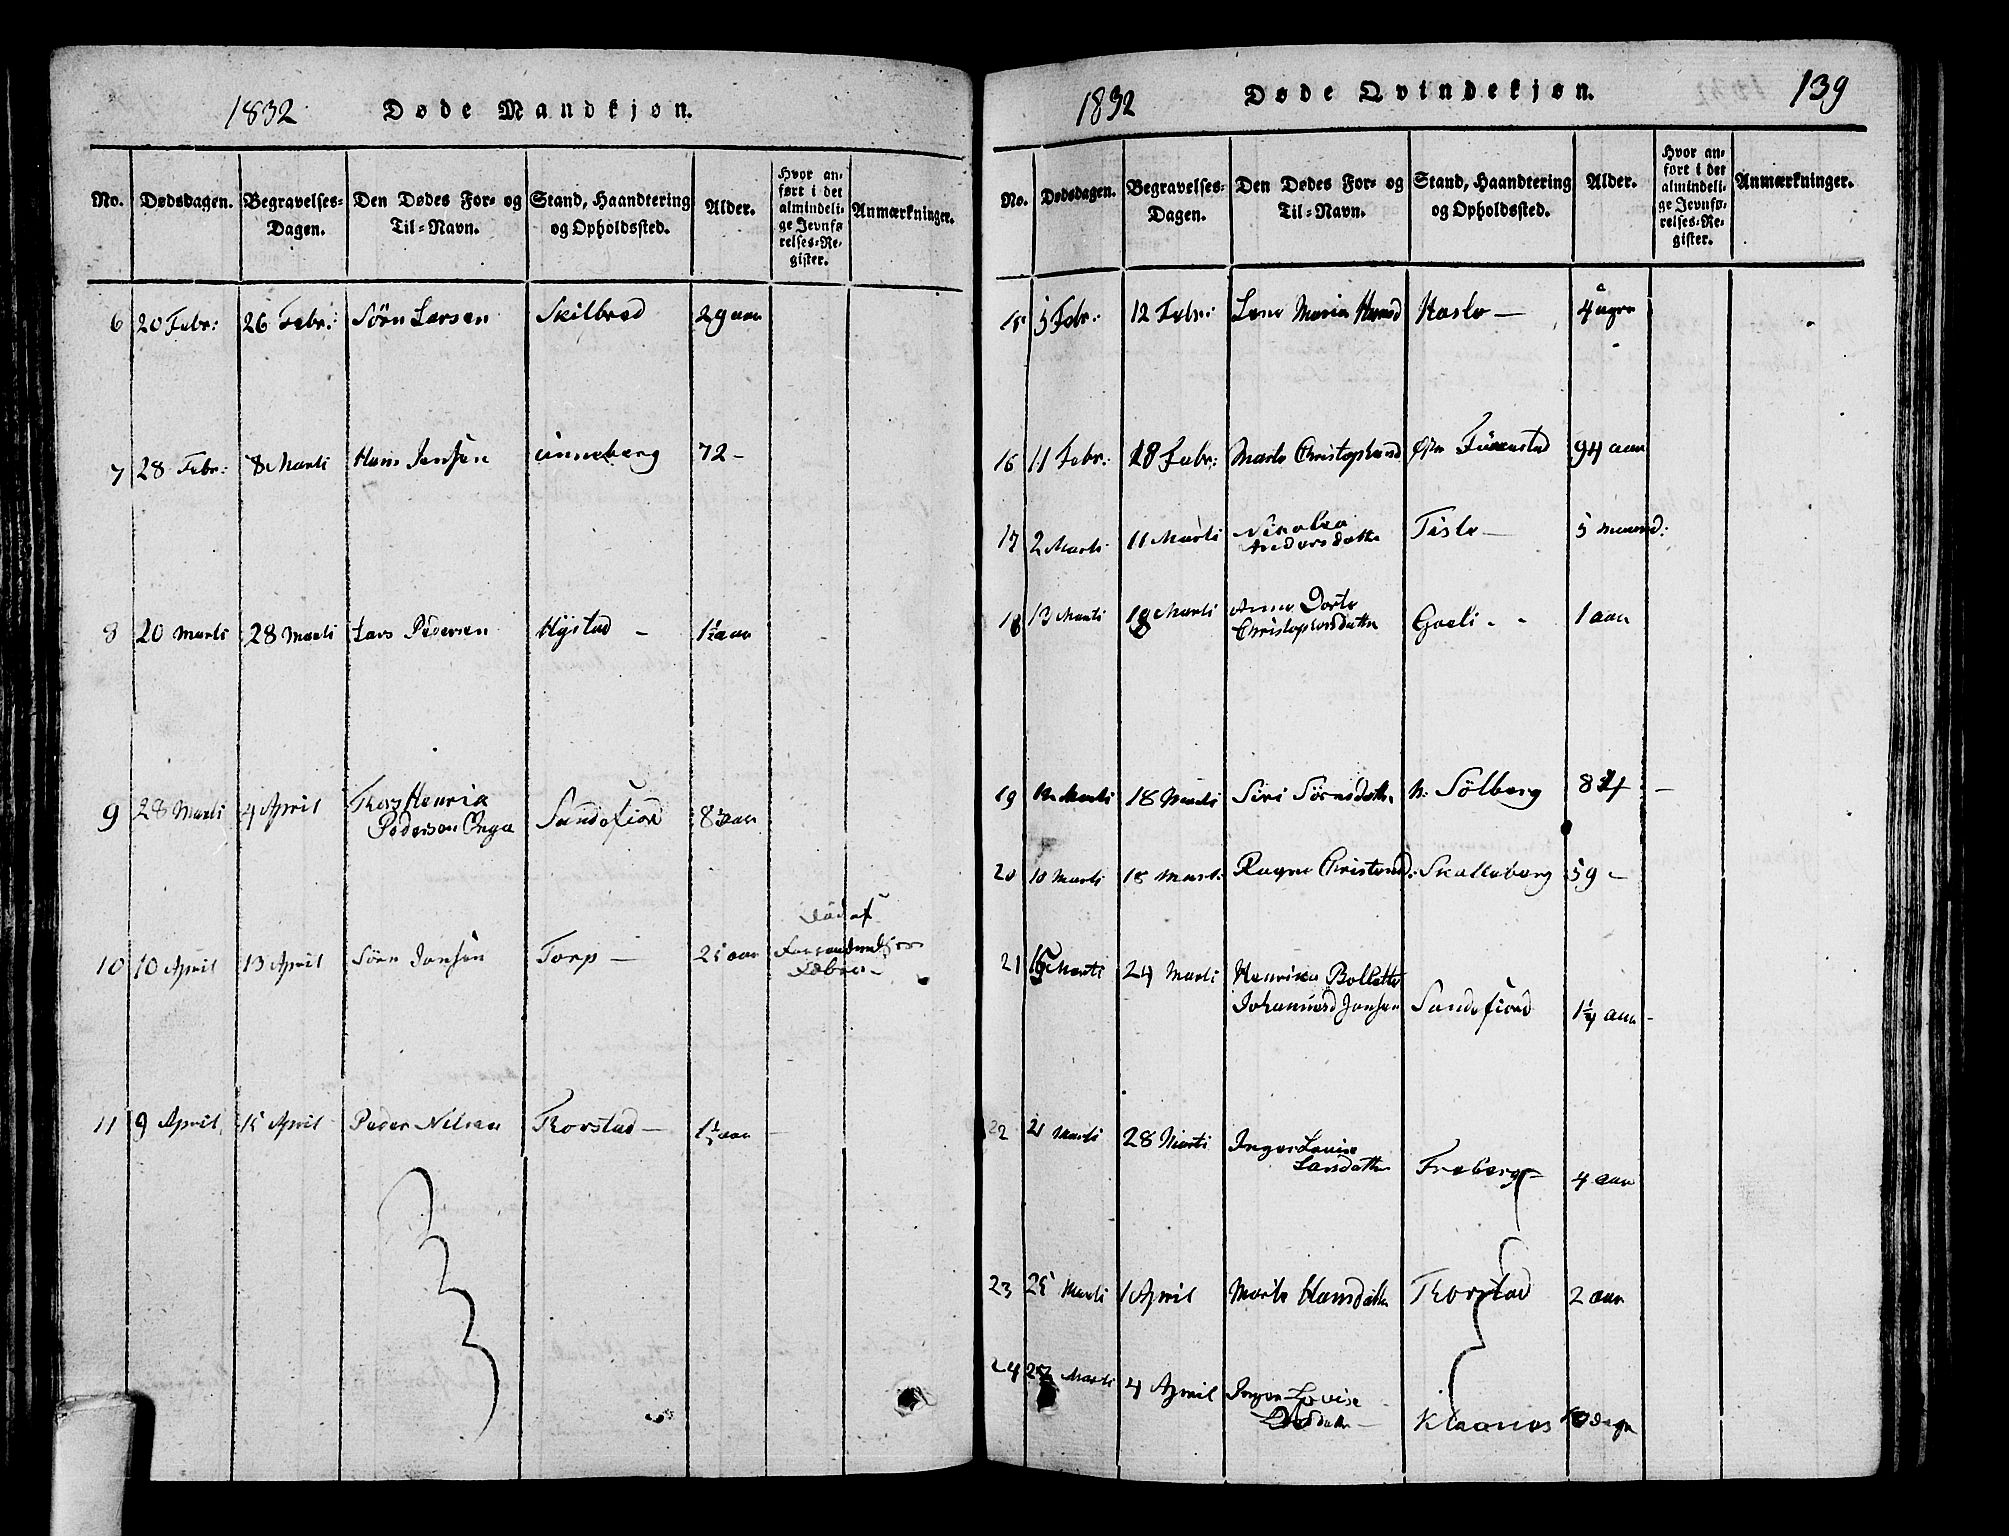 1832 Døde Mandkjøn.
No. Dødsdagen. Begravelses-Dagen. Den Dødes For- og Til-Navn. Stand, Haandtering og Opholdssted. Alder. Hvor anført i det almindelige Jevnførelses-Register. Anmærkninger.
6 20 Febr: 26 Febr: Sörn Larsen Skilbred 29 aar
7 28 Febr: 8 Marti Hans Jensen Unneberg 72 -
8 20 Marti 28 Marti Lars Pedersen Hystad - 1½ aar
9 28 Marti 4 April Henrik
Pedersen Sandefiord 8 aar
Död af
10 10 April 13 April Sörn Jansen Torp - 21 aar
11 9 April 15 April Peder Nilsen Thorstad - aar
1832 Døde Qvindekjøn. 139
No. Dødsdagen. Begravelses-Dagen. Den Dødes For- og Til-Navn. Stand, Haandtering og Opholdssted. Alder. Hvor anført i det almindelige Jevnførelses-Register. Anmærkninger.
15 5 Febr: 12 Febr: Maria Hasle - 4 uger
16 11 Febr: 18 Febr: Marte 94 aar
17 2 Marti 11 Marti Nicolea
Andersdatter - 5 maaned:
18 13 Marti 18 Marti Anne Dorte
Christophersdatter 1 aar
19 Marti 18 Marti Siri Sörnsdatter Sölberg -
20 10 Marti 18 Marti Ragne Skalleberg 59 -
21 Marti 24 Marti Bollette
Jansen Sandefiord aar
22 21 Marti 28 Marti Inger Lovise
Larsdatter Freberg 4 aar
23 25 Marti 1 April Marte Hansdatter Thorstad 2 aar
24 Marti 4 April Inger Lovise
Klavenes dage